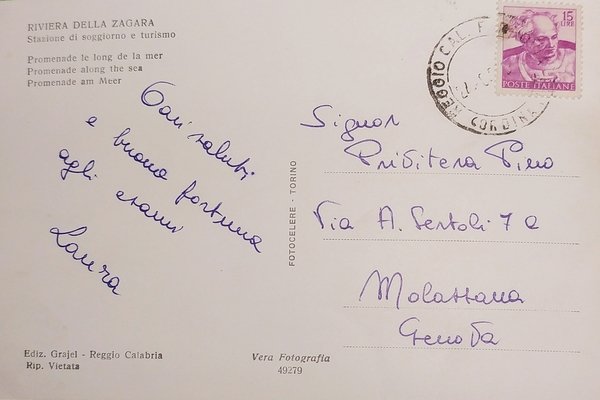 RIVIERA DELLA ZAGARA
Stazione di soggiorno e turismo
Promenade le long de la mer
Promenade along the sea
Promenade am Meer
Cari saluti
e buona fortuna
agli esami
Laura
FOTOCELERE - TORINO
REGGIO CAL. F
CORDINA
15
LIRE
POSTE ITALIANE
Signor
Privitera Pino
Via A. Sertoli 7 a
Molassana
Genova
Ediz. Grajel - Reggio Calabria
Rip. Vietata
Vera Fotografia
49279